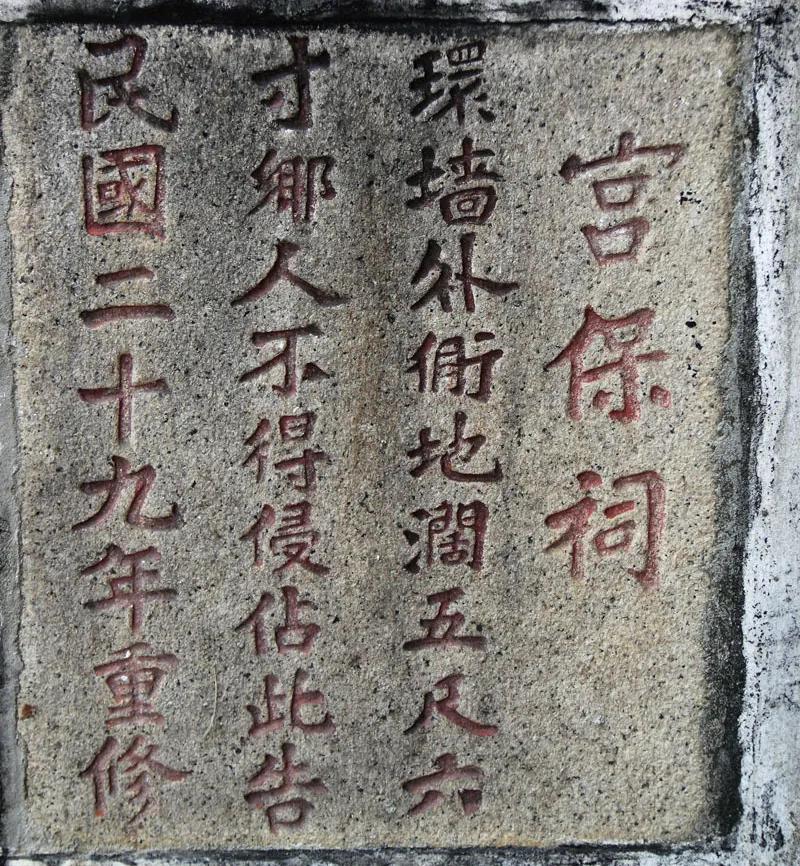 宫保祠
環墙外衖地濶五尺六
寸鄉人不得侵佔此告
民國二十九年重修